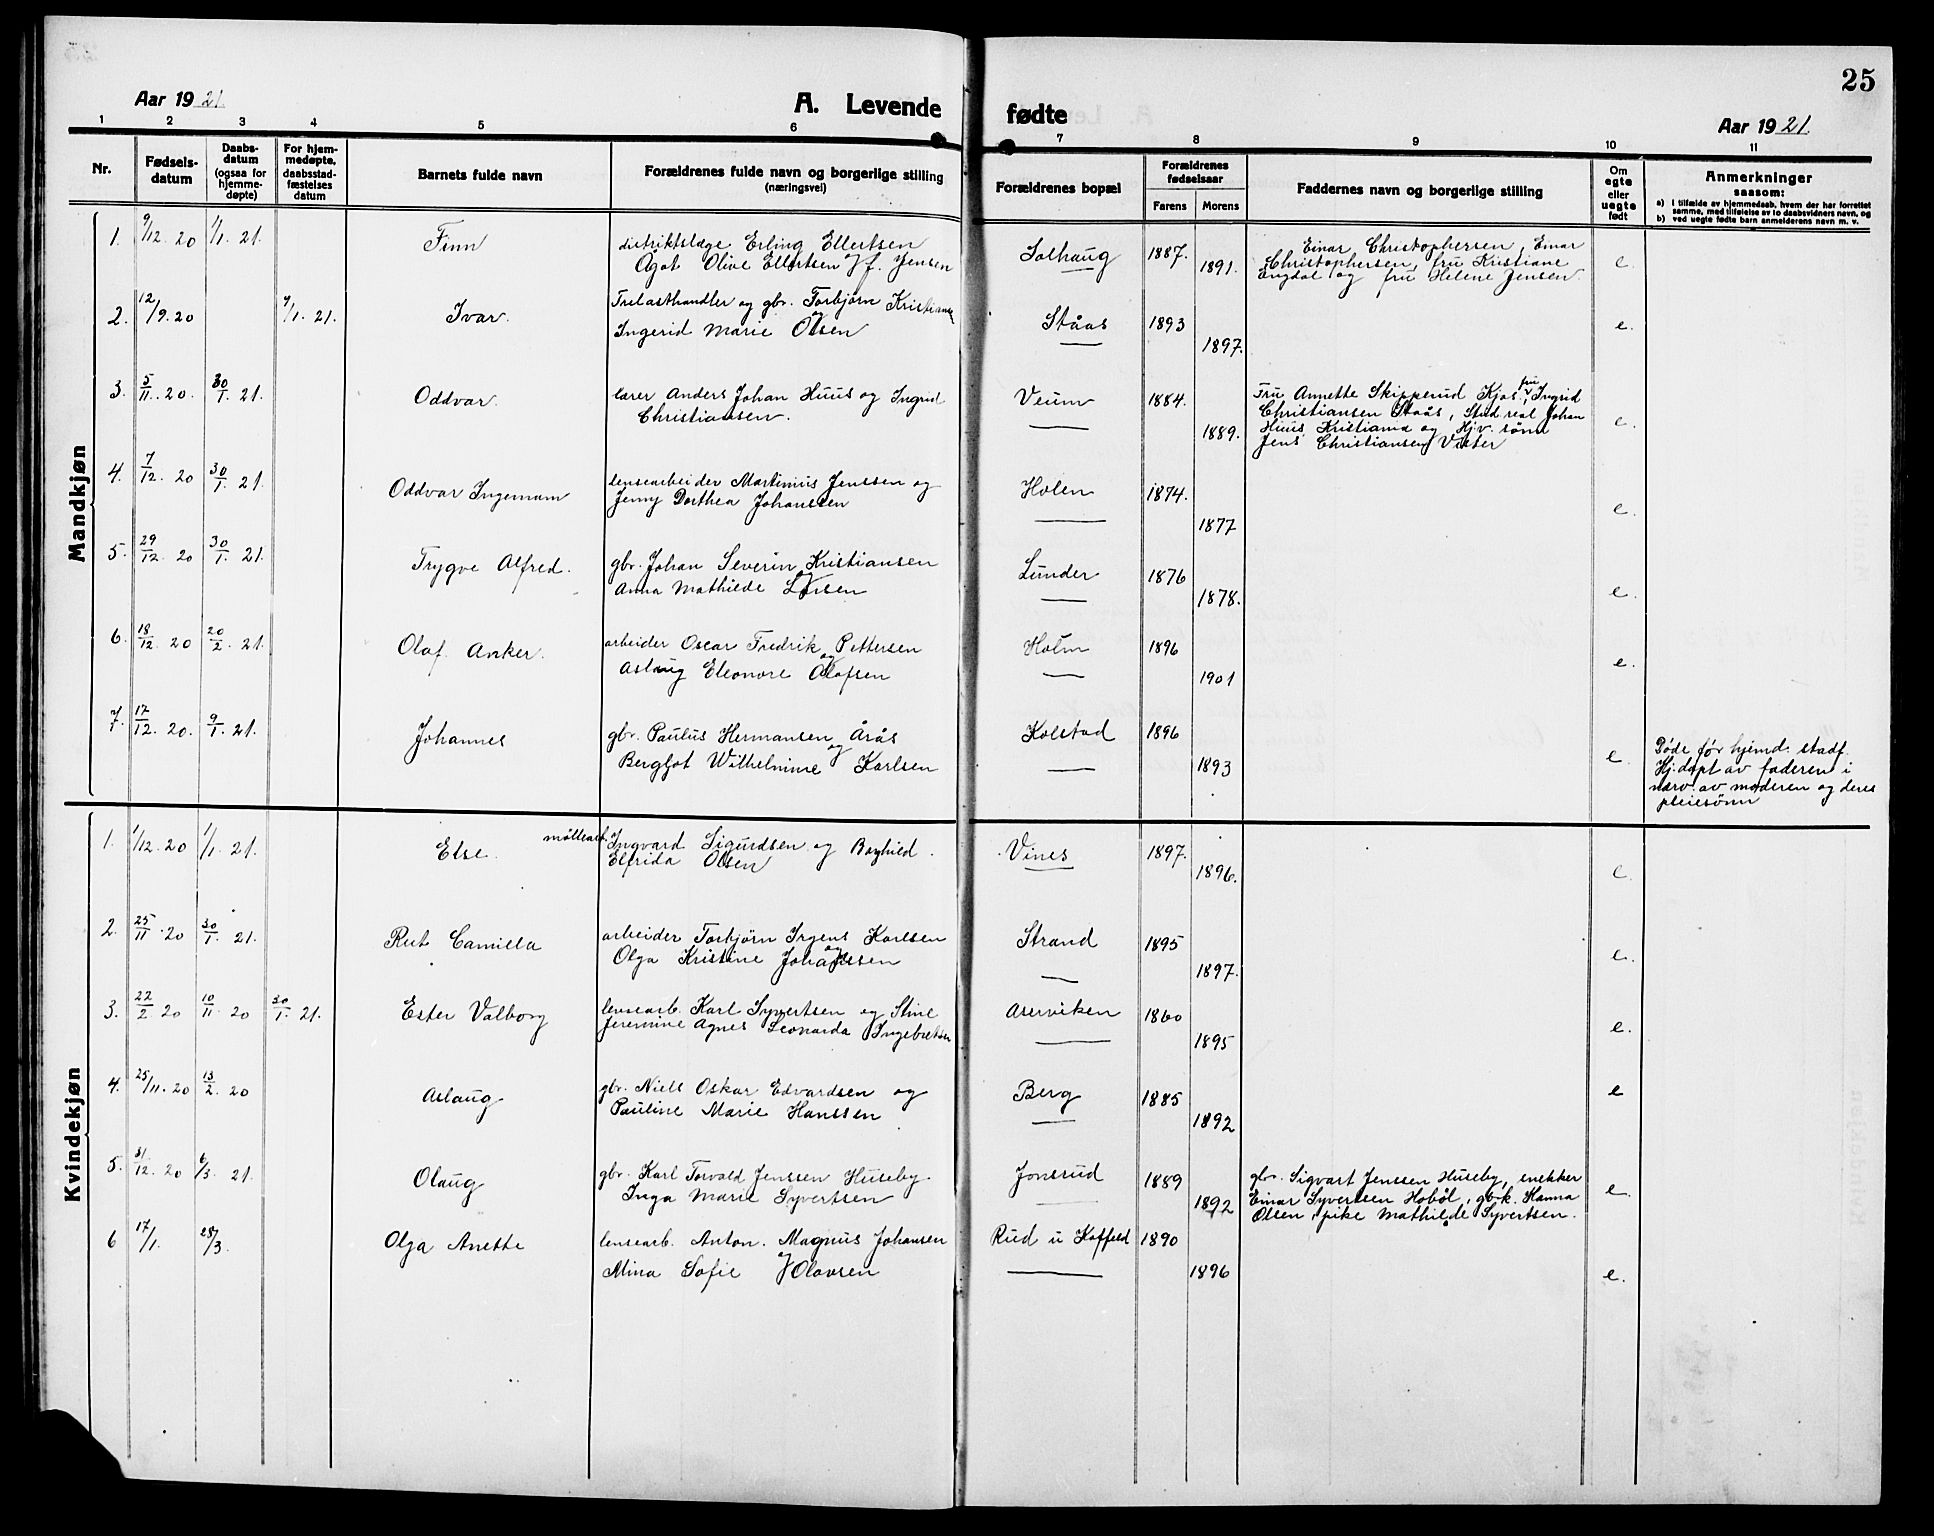 25
Aar 1921.
A. Levende fødte
Aar 1921.
1 2 3 4 5 6 7 8 9 10 11
Nr.
Fødsels-
datum
Daabs-
datum
(ogsaa for
hjemme-
døpte)
For hjem-
medøpte,
daabsstad-
fæstelses
datum
Barnets fulde navn
Forældrenes fulde navn og borgerlige stilling
(næringsvei)
Forældrenes bopæl
Forældrenes
fødselsaar
Farens Morens
Faddernes navn og borgerlige stilling
Om
egte
eller
uegte
født
Anmerkninger
saasom:
a) i tilfælde av hjemmedaab, hvem der har forrettet
samme, med tilføielse av to daabsvidners navn, og
b) ved uegte fødte barn anmelderens navn m. v.
Mandkjøn
1. 9/12 20 1/1. 21. Finn
distriktslæge Erling Ellertsen
Ågot Olive Ellertsen f. Jensen
Solhaug 1887. 1891.
Einar Christophersen, Einar
Christophersen, fru Kristiane
Engdal og fru Helene Jensen.
e.
2. 12/9. 20 9/1. 21. Ivar.
Trelasthandler og gbr. Torbjørn Kristiansen
og
Ingerid Marie Olsen
Ståas 1893 1897.
e.
3. 5/11. 20. 30/1. 21. Oddvar.
lærer Anders Johan Huus og Ingrid
Christiansen.
Veum 1884. 1889.
fru
Fru Annette Skipperud Kjos, Ingrid
Christiansen Staås, Stud. real Johan
Huus Kristiania og Hjv. sønn
Jens Christiansen Vister
e.
4. 7/12. 20 30/1. 21. Oddvar Ingemann
lensearbeider Martinius Jenssen og
Jenny Dorthea Johanssen
Holen 1874. 1877
e.
5. 29/12. 20 30/1. 21. Trygve Alfred.
gbr. Johan Severin Kristiansen
og
Anna Mathilde Larsen
Lunder 1876 1878.
e.
6. 18/12. 20 20/2. 21. Olaf Anker.
arbeider Oscar Fredrik Pettersen
og
Aslaug Eleonore Olafsen
Holm 1896 1901
e.
7. 17/12. 20. 9/1. 21. Johannes
gbr. Paulus Hermansen Årås
og
Bergljot Wilhelmine Karlsen
Kolstad 1896 1893
e.
Døde før hjemd. stadf.
Hj. døpt av faderen i
nærv. av moderen og deres
pleiesønn
Kvindekjøn
1. 1/12. 20 1/1. 21. Else.
møllearb. Ingvard Sigurdsen og Borghild
Elfrida Olsen
Vines 1897. 1896.
e.
2. 25/11. 20 30/1. 21. Rut Camilla
arbeider Torbjørn Irgens Karlsen
og
Olga Kristine Johanssen
Strand 1895 1897.
e.
3. 22/2 20 10/11. 20 30/1. 21. Ester Valborg
lensearb. Karl Syvertsen og Stine
Jeremine Agnes Leonarda Ingebretsen
Aserviken 1860 1895
e.
4. 25/11. 20 13/2. 20 Aslaug
gbr. Niels Oskar Edvardsen og
Pauline Marie Hanssen
Berg 1885 1892
e
5. 31/12. 20 6/3. 21. Olaug
gbr. Karl Torvald Jenssen Huseby
Inga Marie Syvertsen
Jonsrud 1889 1892
gbr. Sigvart Jenssen Huseby, snekker
Einar Syvertsen Hobøl, gbk. Hanna
Olsen, pike Mathilde Syvertsen.
e.
6 17/1. 28/3. Olga Anette
lensearb. Anton. Magnus Johansen
og
Mina Sofie Olavsen
Rud u Kaffeld 1890 1896
e.